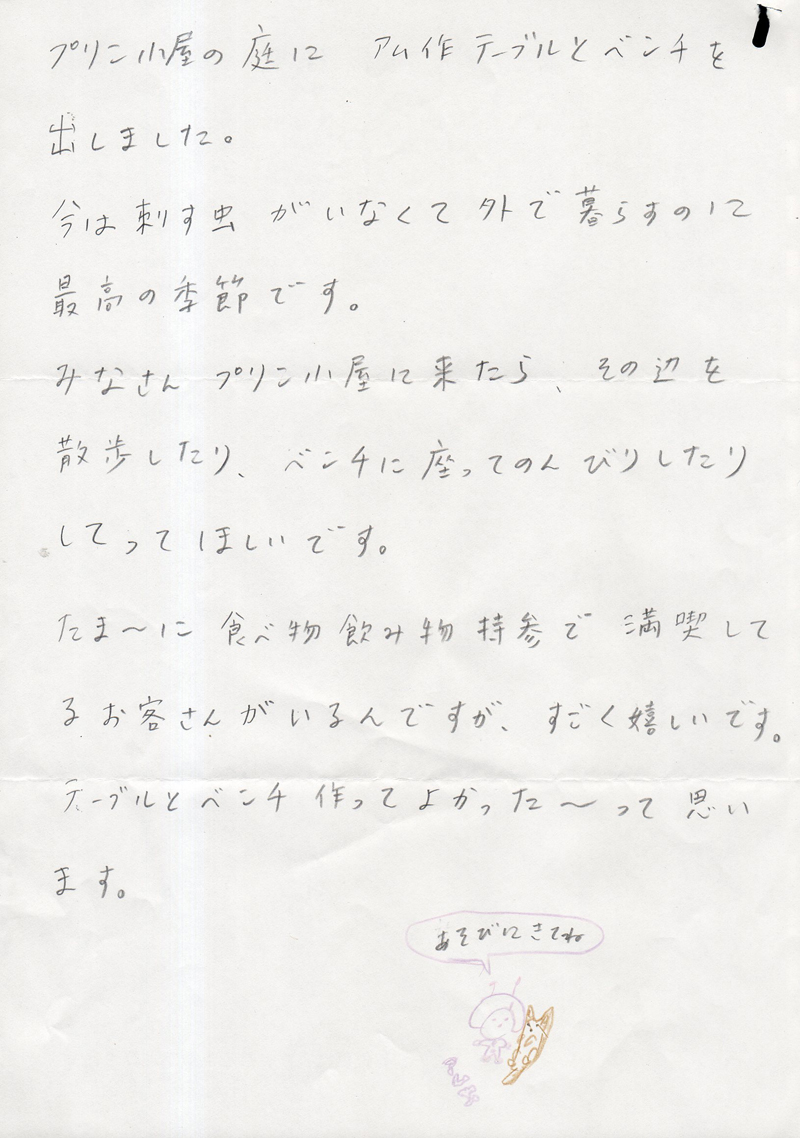 プリン小屋の庭に アム作テーブルとベンチを
出しました。
今は刺す虫がいなくて外で暮らすのに
最高の季節です。
みなさん プリン小屋に来たら、その辺を
散歩したり、ベンチに座ってのんびりしたり
してってほしいです。
たま〜に 食べ物飲み物持参で 満喫して
るお客さんがいるんですが、すごく嬉しいです。
テーブルとベンチ 作ってよかった〜って 思い
ます。
あそびにきてね